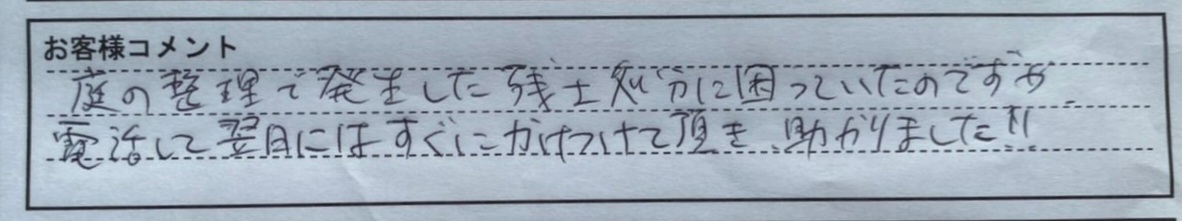 お客様コメント
庭の整理で発生した残土処分に困っていたのですが
電話して翌日にはすぐにかけつけて頂き、助かりました!!